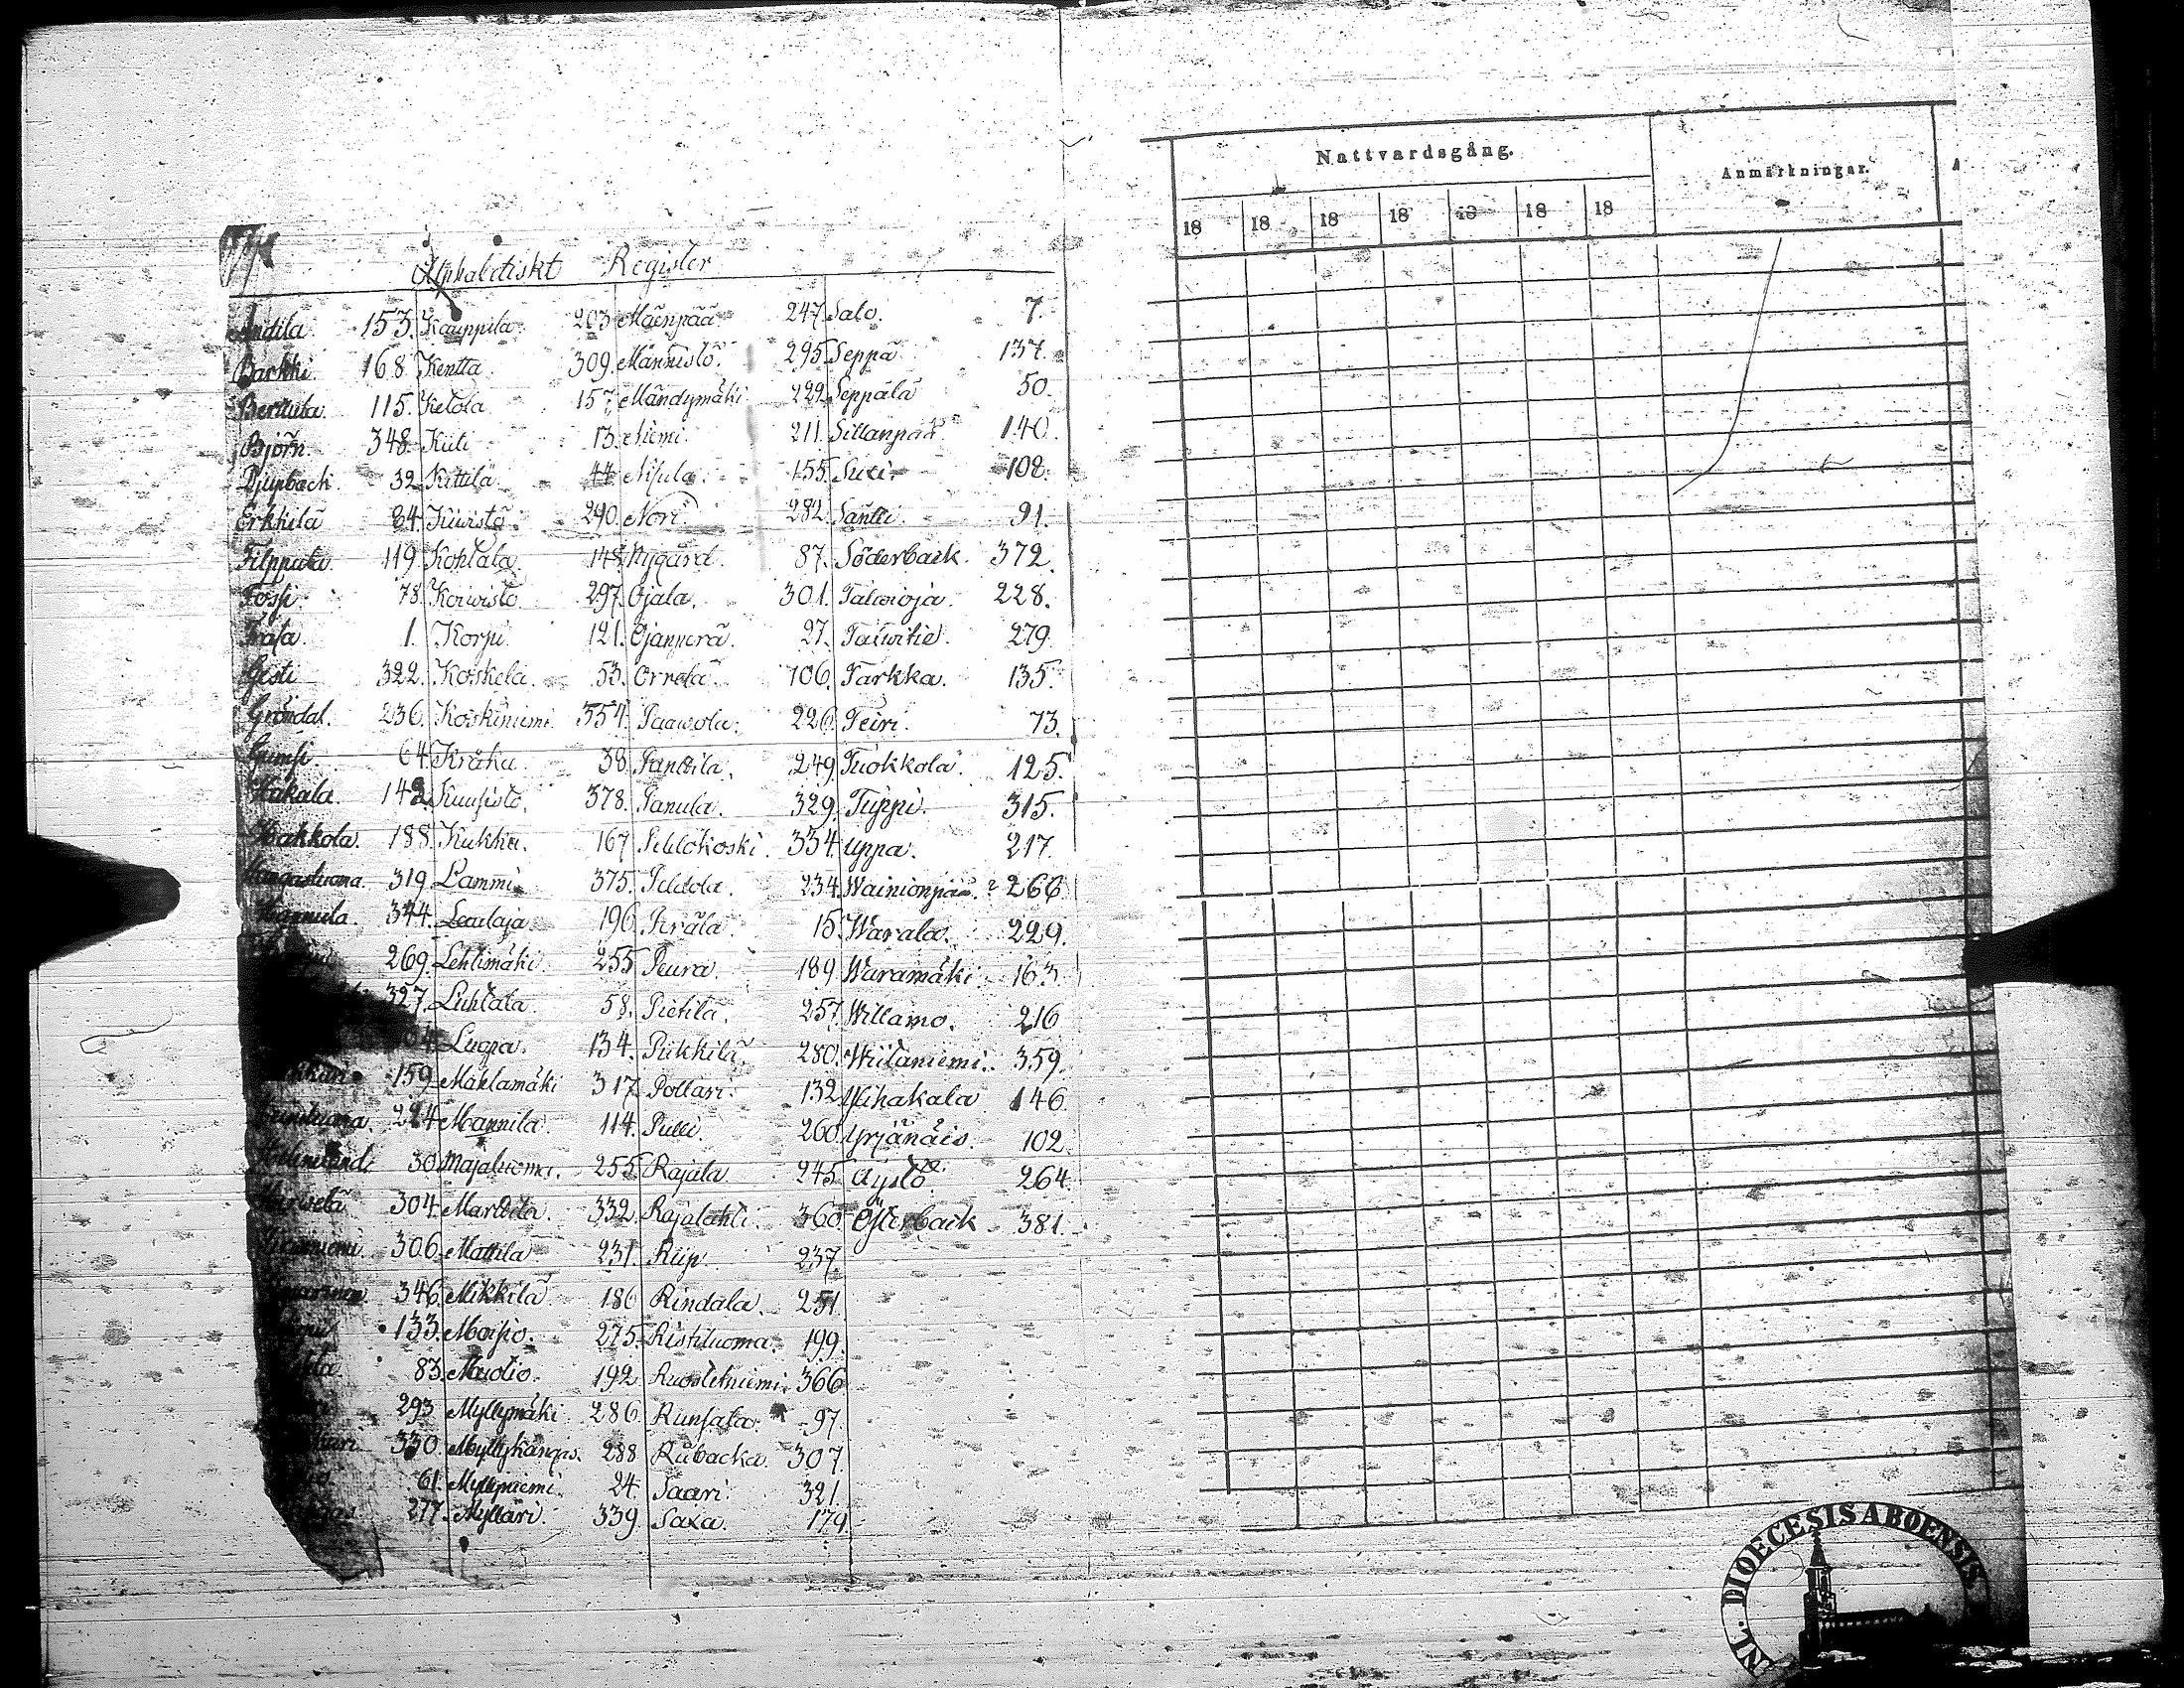 Alphabetiskt Register
Andila. 153. Kauppila. 203 Mäenpää 247 Salo. 7.
Barkki. 168. Kentta. 309. Männistö. 295 Seppä 137.
115. Ketola 157 Mändymäki 222 Seppälä 50.
Björn. 348. Kiiti 13. Niemi. 211. Sillanpää 140.
Djupback. 32 Kittilä 44 155 108.
Erkkilä 84. 290. Nori 282. Säntti. 91.
Filppula. 119. Kohtala. 148 Nygård. 87. Söderback. 372.
78. Koivisto. 297. Ojala. 301. Talwioja. 228.
1. Korpi. 121. Ojanperä. 27. Talwitie. 279.
Gesti 322. Koskela. 53. Orrela. 106. Tarkka. 135.
Gröndal. 236. Koskiniemi. 354. Paawola. 226 Teiri. 73.
64. Krähu. 38. Panttila. 249. Tuokkola. 125.
Hakala. 142 Kuusisto. 378. Panula. 329. Tuppi. 315.
Hakkola. 188. Kukka. 167 Peldokoski. 334. Uppa. 217.
Hangasluoma. 319. Lammi. 375. Peldola. 234. Wainionpää. 266
Hannula. 344. Laulaja 196. Perälä. 15. Warala. 229.
269. Lehtimäki. 255 Peura. 189. Waramäki. 163.
327. Luhtala. 58. Pietilä. 257. Willamo. 216
Luopa. 134. Pirkkilä. 280. Wiitaniemi. 359.
159 Mahlamäki 317. Pollari. 132 Ylihakala 146.
224 Mannila. 114. Pulli. 260. Yrjänäis. 102
30. Majaluoma. 255. Rajala. 245 Äystö. 264.
304. Marttila. 332. Rajalahti. 360. Österback 381.
306. Mattila 231. Riip. 237.
346. Mikkilä. 186 Rindala. 251.
133. Moisio. 275. Ristiluoma. 199.
83. Mudio. 192. Ruosteniemi. 366
293 Myllymäki. 286. Runsala. 97.
330. Myllykangas. 288 Rübacka. 307.
61. Mylliniemi. 24. Saari. 321.
277. Mylläri. 339. Saxa. 179
Nattvardsgång.
Anmärkningar.
18 18 18 18 18 18 18
DIOECESIS ABOENSIS